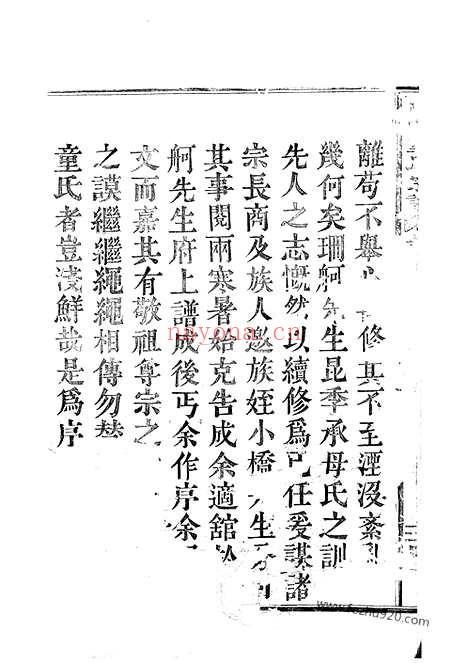 離苟不舉 修其不至湮沒紊
幾何矣珊舸先生昆季承母氏之訓
先人之志慨然以續修爲己任爰謀諸
宗長商及族人邀族姪小橋 生
其事閱兩寒暑始克告成余適舘於
舸先生府上譜成後丐余作序余
文而嘉其有敬祖尊宗之
之謨繼繼繩繩相傳勿替
童氏者豈淺鮮哉是爲序
nayona.cn
www.fozhu920.com